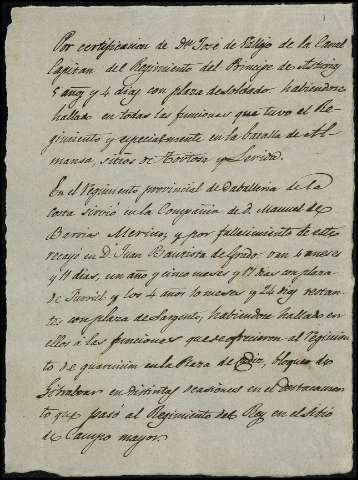 Por certificacion de Dn José de Vallejo de la Canal
Capitan del Regimiento del Principe de Asturias
5 años y 4 dias con plaza de Soldado. habiendose
hallado en todas las funciones que tuvo el Re-
gimiento y especialmente en la batalla de Al-
mansa, sitios de Tortosa y Lerida.
En el Regimiento provincial de Caballeria de la
costa sirvió en la Compañia de D. Manuel de
Barrias Merino, y por fallecimiento de este
recayó en D. Juan Bautista de 4 meses
y 11 dias, un año y cinco meses y 17 dias con plaza
de y los 4 años 10 meses y 24 dias restan-
tes con plaza de Sargento, habiendose hallado en
ellos á las funciones que se ofrecieron al Regimien
to de guarnicion en la Plaza de bloqueo de
Gibraltar en distintas ocasiones en el destacamen
to que pasó al Regimiento del Rey en el sitio
de Campo mayor.